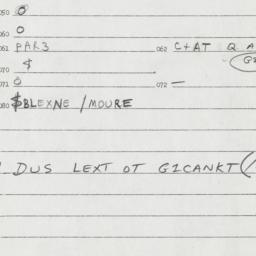 050 0
060 0
061 PAR3 062 C+AT Q A
070 $ G2
071 072 —
080 $BLEXNE /MOURE
DUS LEXT OT G2CANKT(